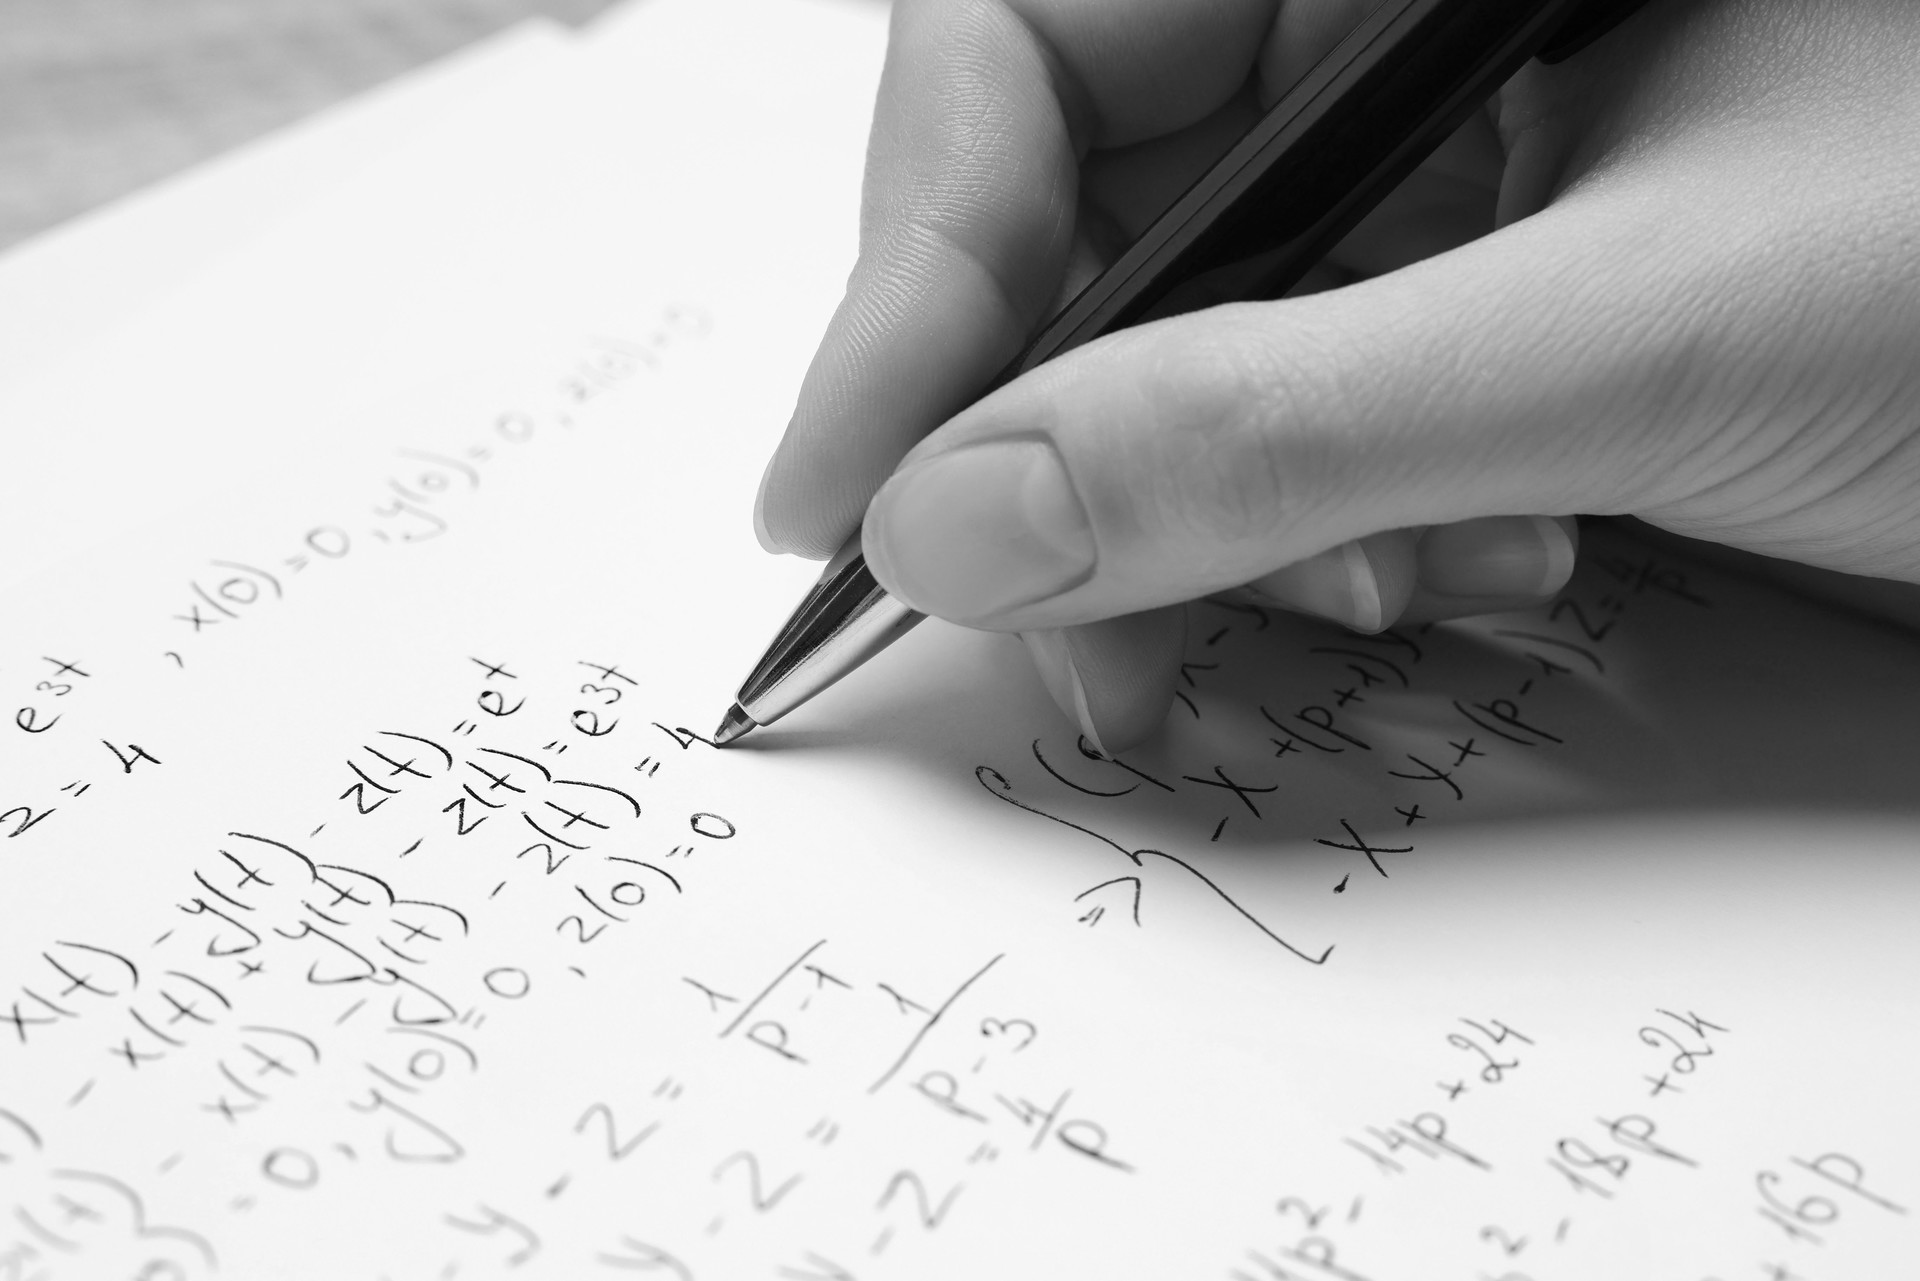 , x(0)=0, y(0)=0, z(0)=0
e3t
z=4
x(t) - y(t) - z(t) = et
- x(t) + y(t) - z(t) = e3t
- x(t) - y(t) - z(t) = 4
=0, y(0)=0, z(0)=0
- y - z = 1/p-1
y - z = 1/p-3
y - z = 4/p
=> {
-x+(p+1)y-
-x+y+(p-1)z=4/p
p2-14p+24
2-18p+24
+16p